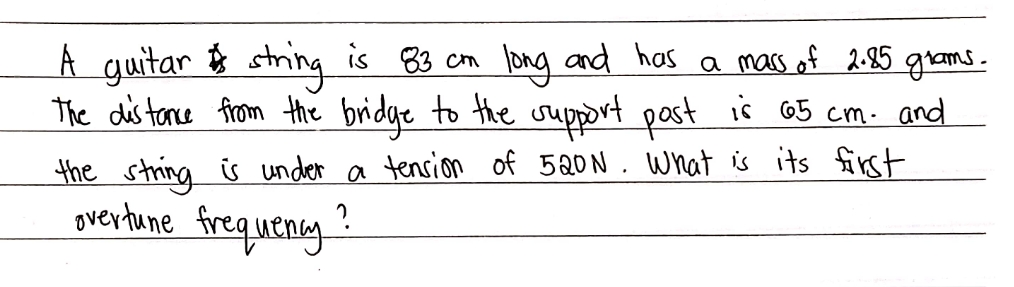 A guitar string is 83 cm long and has a mass of 2.85 grams.
The distance from the bridge to the support post is 65 cm. and
the string is under a tension of 520N. What is its first
overtune frequency?